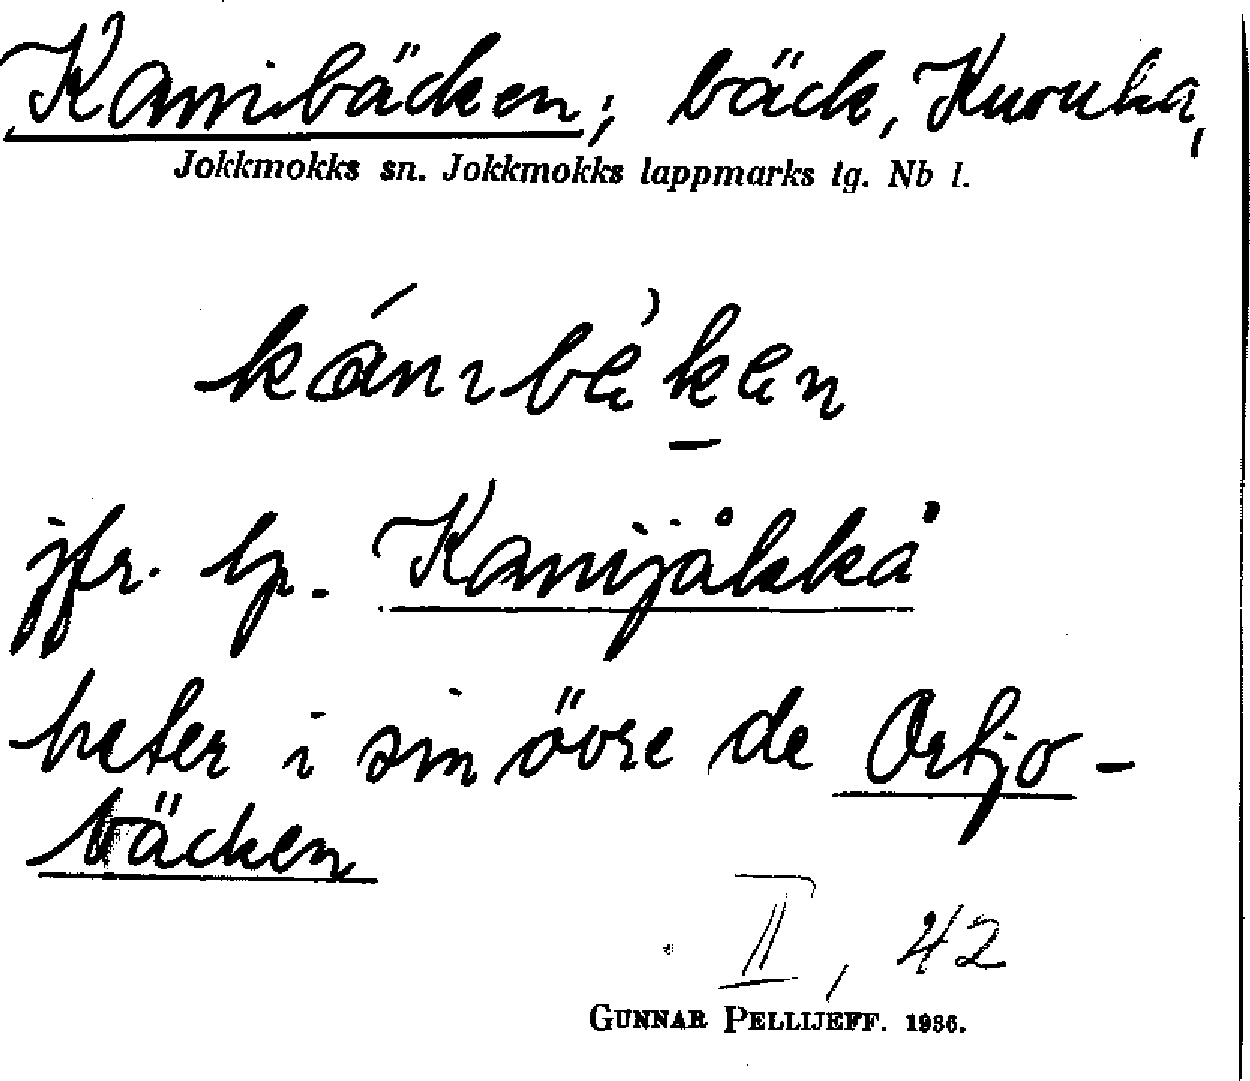 Kanibäcken; bäck, Kuouka,
Jokkmokks sn. Jokkmokks lappmarks tg. Nb l.
jfr. lp. Kanijåkkå
heter i sin övre de Ortjo-
bäcken
II, 42
GUNNAR PELLIJEFF. 1936.